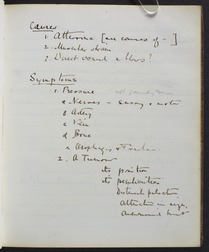 Causes
1. Atheroma [see causes of - ]
2. Muscular strain
3. Direct wound or blow?
Symptoms
1. Pressure
a Nerves - sensory & motor
b Artery
c Vein
d Bone
e Oesophagus & Trachea
2. A Tumour
its position
its peculiarities
Distinct pulsation
Alteration in size,